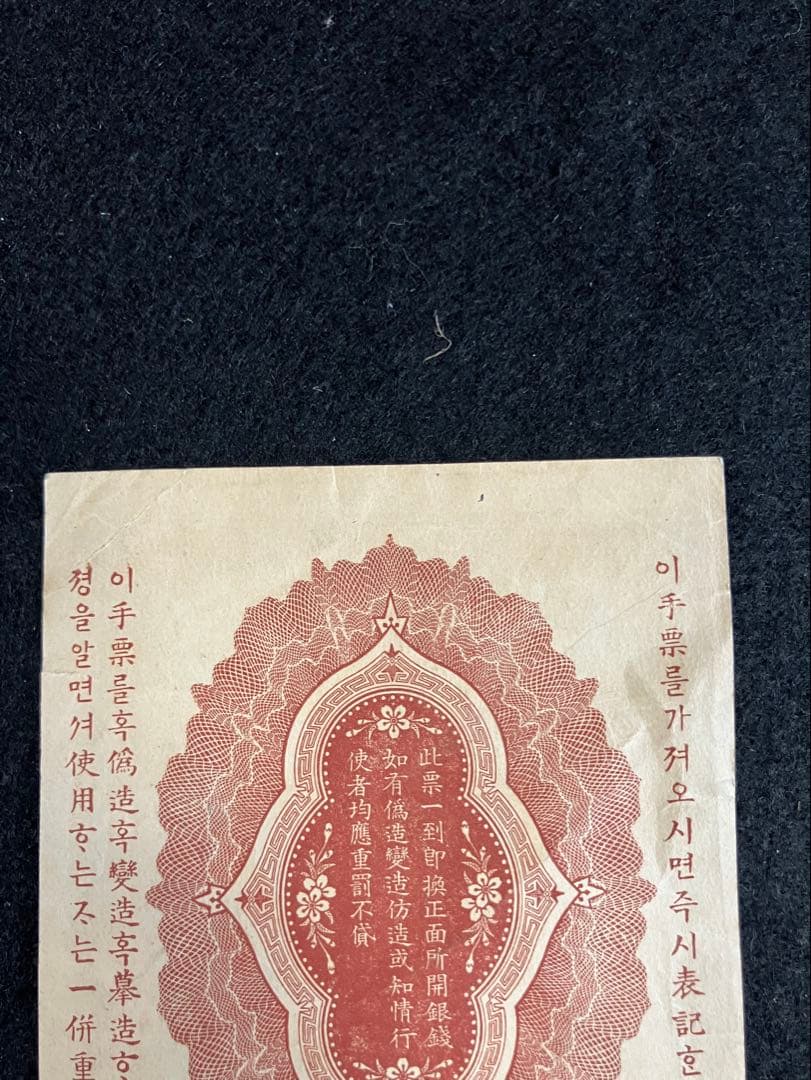 이手票를가져오시면즉시表記ᄒᆞᆫ
此票一到卽換正面所開銀錢
如有僞造變造仿造或知情行
使者均應重罰不貸
이手票를혹僞造혹變造혹摹造ᄒᆞ
졍을알면셔使用ᄒᆞ는ᄌᆞ는一併重